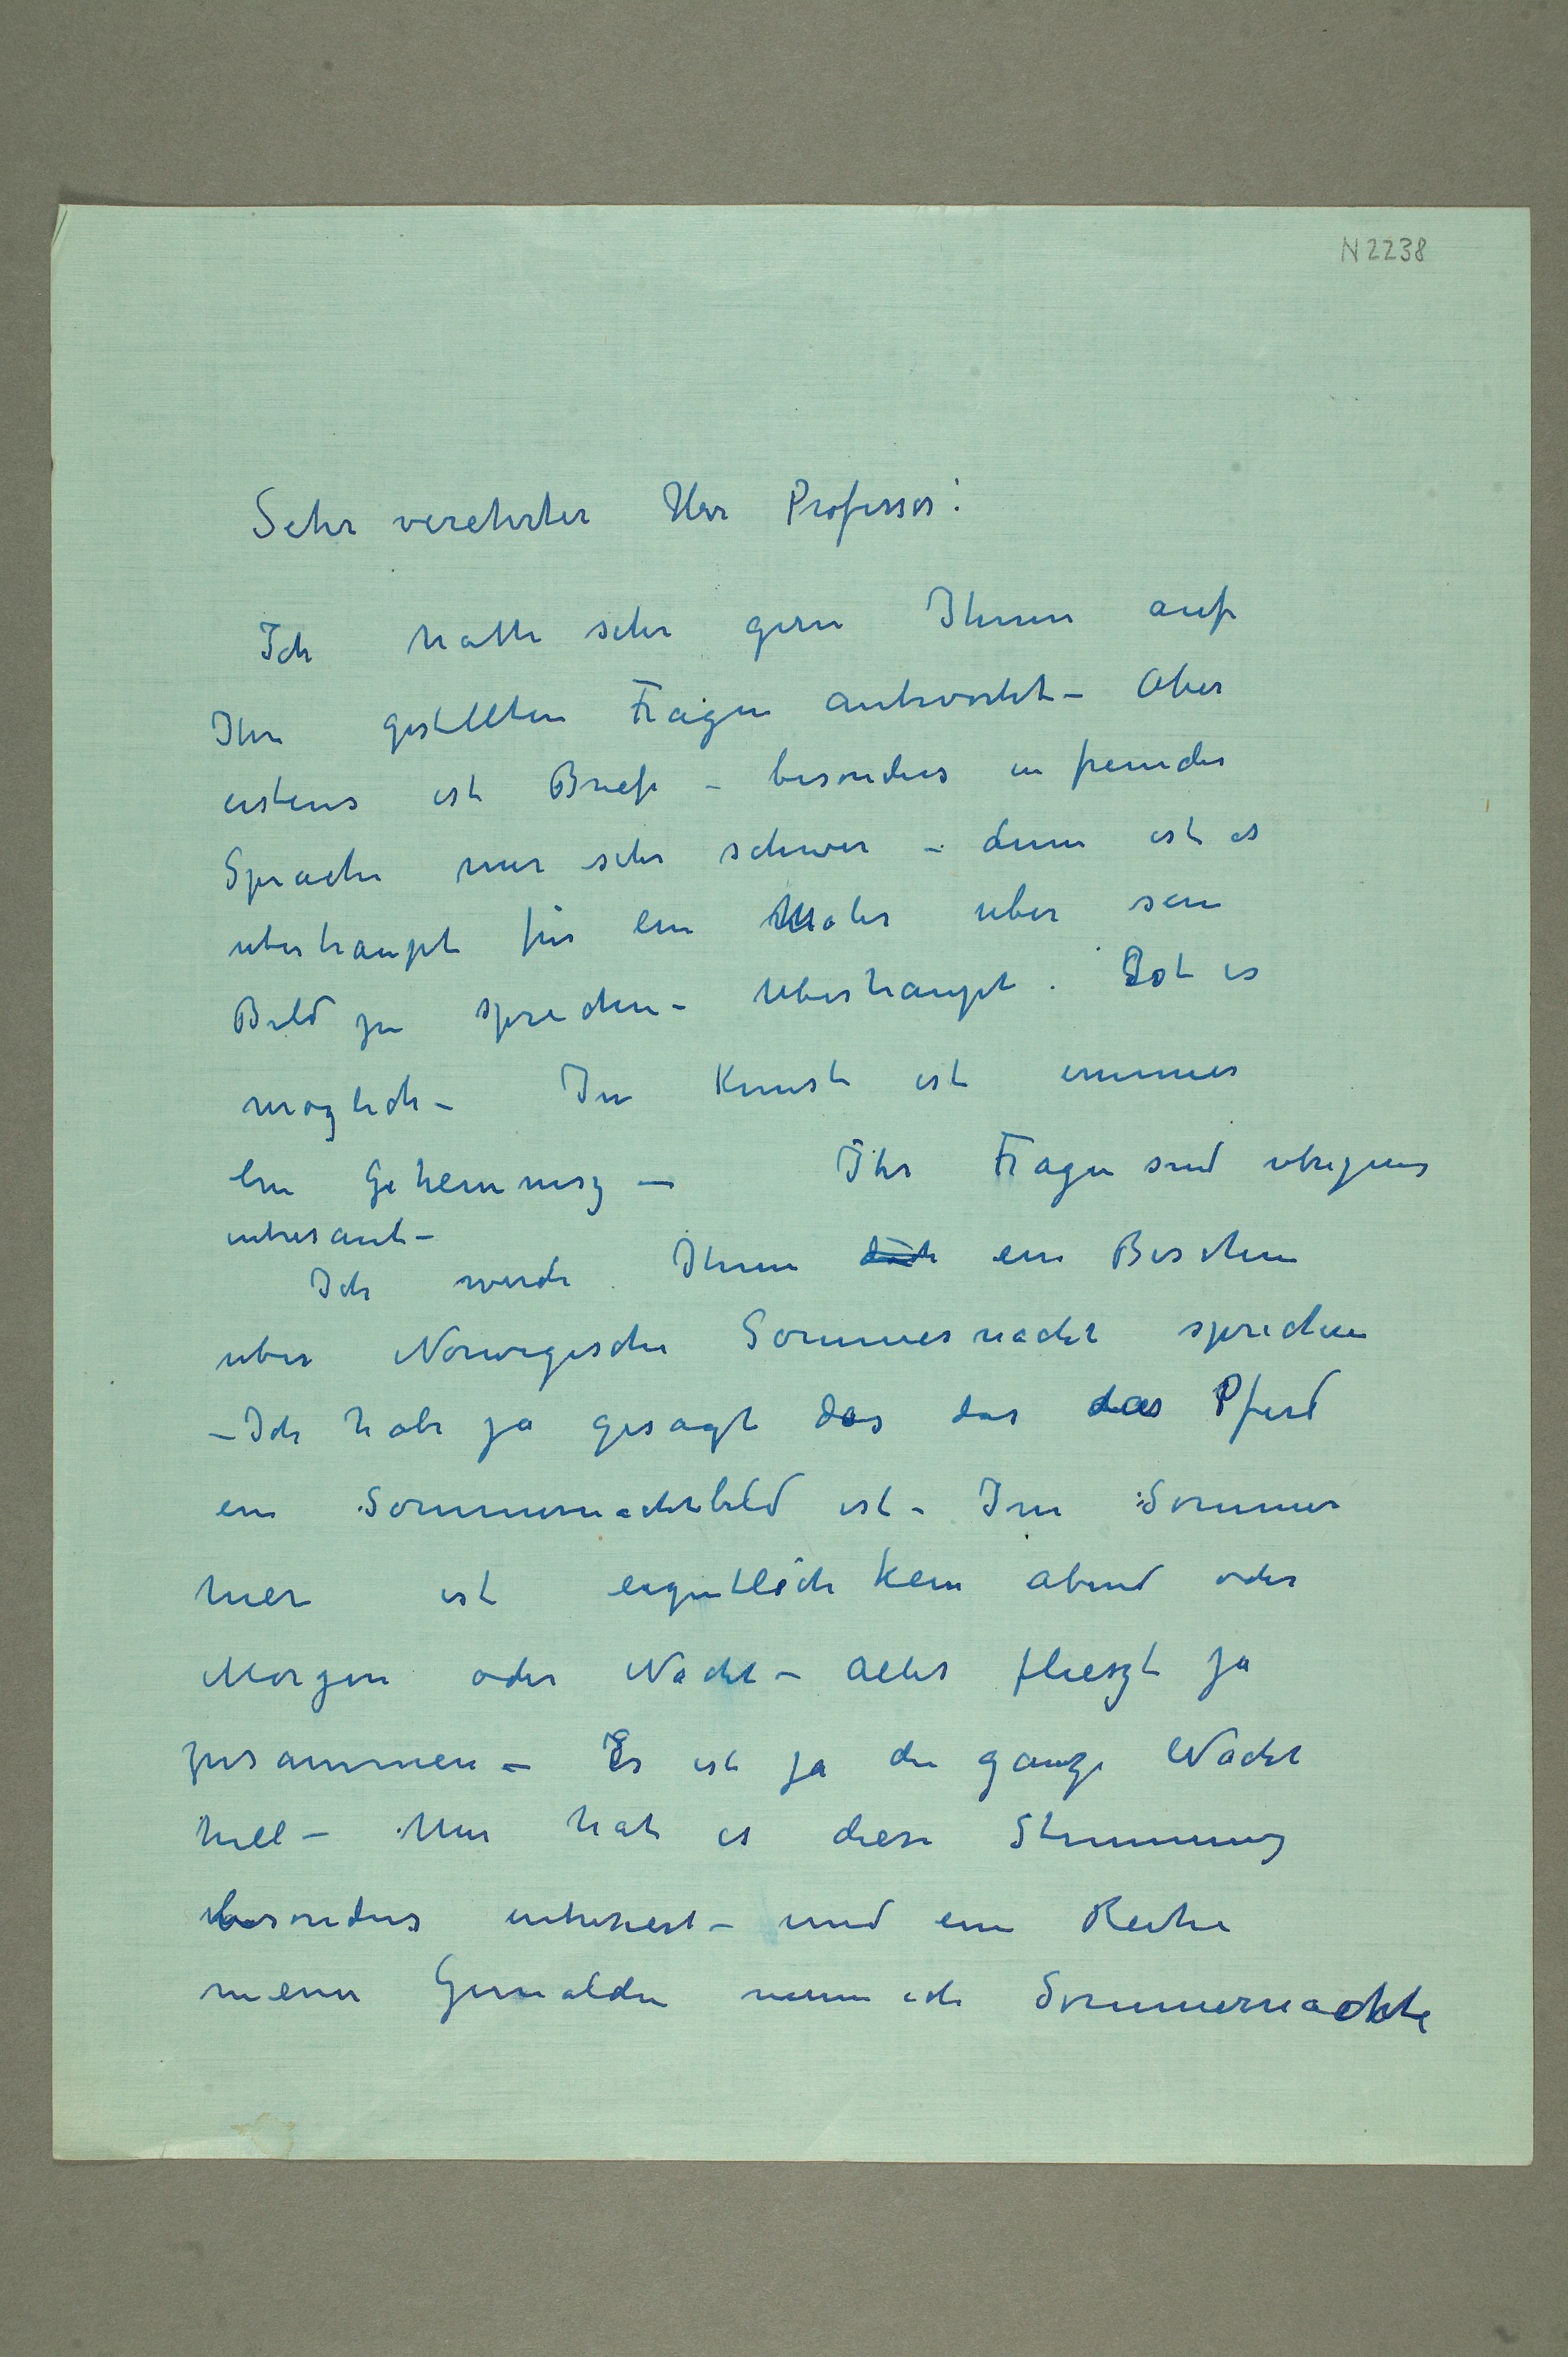 N 2238
Sehr verehrter Herr Professor!
Ich hatte sehr gern Ihnen auf
Ihre gestellten Fragen antwortet – Aber
erstens ist Briefe – besonders in fremder
Sprache mir sehr schwer – denn ist es
uberhaupt für ein Maler uber sein
Bild zu sprechen – Uberhaupt. Ist es
moglich – In Kunst ist immer
ein Geheimnisz – Ihr Fragen sind ubrigens
intresant –
Ich werde Ihnen doch ein Bischen
uber Norwegische Sommernacht sprechen
– Ich habe ja gesagt das das das Pferd
ein Sommernachtbild ist – Im Sommer
hier ist eigentlich kein abend oder
Morgen oder Nacht – alles flieszt ja
zusammen – Es ist ja die ganze Nacht
hell – Mir hat es diese Stimmung
besonders intresiert – und eine Reihe
meiner Gemalden nenne ich Sommernachte